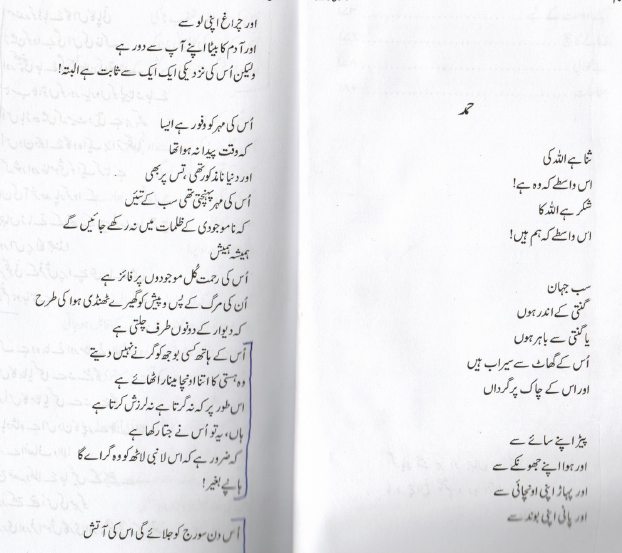 حمد
ثنا ہے اللہ کی
اس واسطے کہ وہ ہے!
شکر ہے اللہ کا
اس واسطے کہ ہم ہیں!
سب جہان
گنتی کے اندر ہوں
یا گنتی سے باہر ہوں
اُس کے گھاٹ سے سیراب ہیں
اور اس کے چاک پر گرداں
پیڑ اپنے سائے سے
اور ہوا اپنے جھونکے سے
اور پہاڑ اپنی اونچائی سے
اور پانی اپنی بوند سے
اور چراغ اپنی لو سے
اور آدم کا بیٹا اپنے آپ سے دور ہے
ولیکن اُس کی نزدیکی ایک ایک سے ثابت ہے البتہ!
اُس کی مہر کو وفور ہے ایسا
کہ وقت پیدا نہ ہوا تھا
اور دنیا نامذکور تھی، تس پر بھی
اُس کی مہر پہنچتی تھی سب کے تئیں
کہ ناموجودی کے ظلمات میں نہ رکھے جائیں گے
ہمیشہ ہمیش
اُس کی رحمت کُل موجودوں پر فائز ہے
اُن کی مرگ کے پس و پیش کو گھیرے ٹھنڈی ہوا کی طرح
کہ دیوار کے دونوں طرف چلتی ہے
اُس کے ہاتھ کسی بوجھ کو گرنے نہیں دیتے
وہ ہستی کا اتنا اونچا مینار اٹھائے ہے
اس طور پر کہ نہ گرتا ہے نہ لرزش کرتا ہے
ہاں، یہ تو اُس نے جتا رکھا ہے
کہ ضرور ہے کہ اس لانبی لاٹھ کو وہ گرائے گا
ہانپے بغیر!
اُس دن سورج کو جلائے گی اس کی آتش